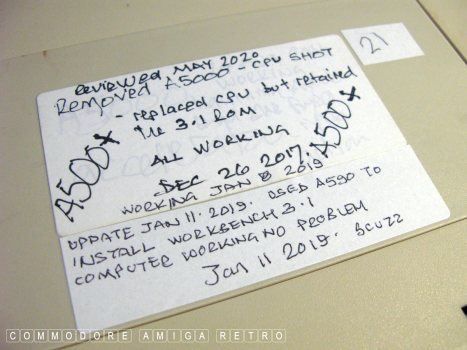 Reviewed MAY 2020
Removed A5000 - CPU SHOT
- replaced cpu but retained
the 3.1 ROM
ALL WORKING
A500x
A500x
DEC 26 2017.
WORKING JAN 8 2019
UPDATE JAN 11. 2019. USED A590 TO
INSTALL WORKBENCH 3.1
COMPUTER WORKING NO PROBLEM
Jan 11 2019. SCUZZ
21
COMMODORE AMIGA RETRO